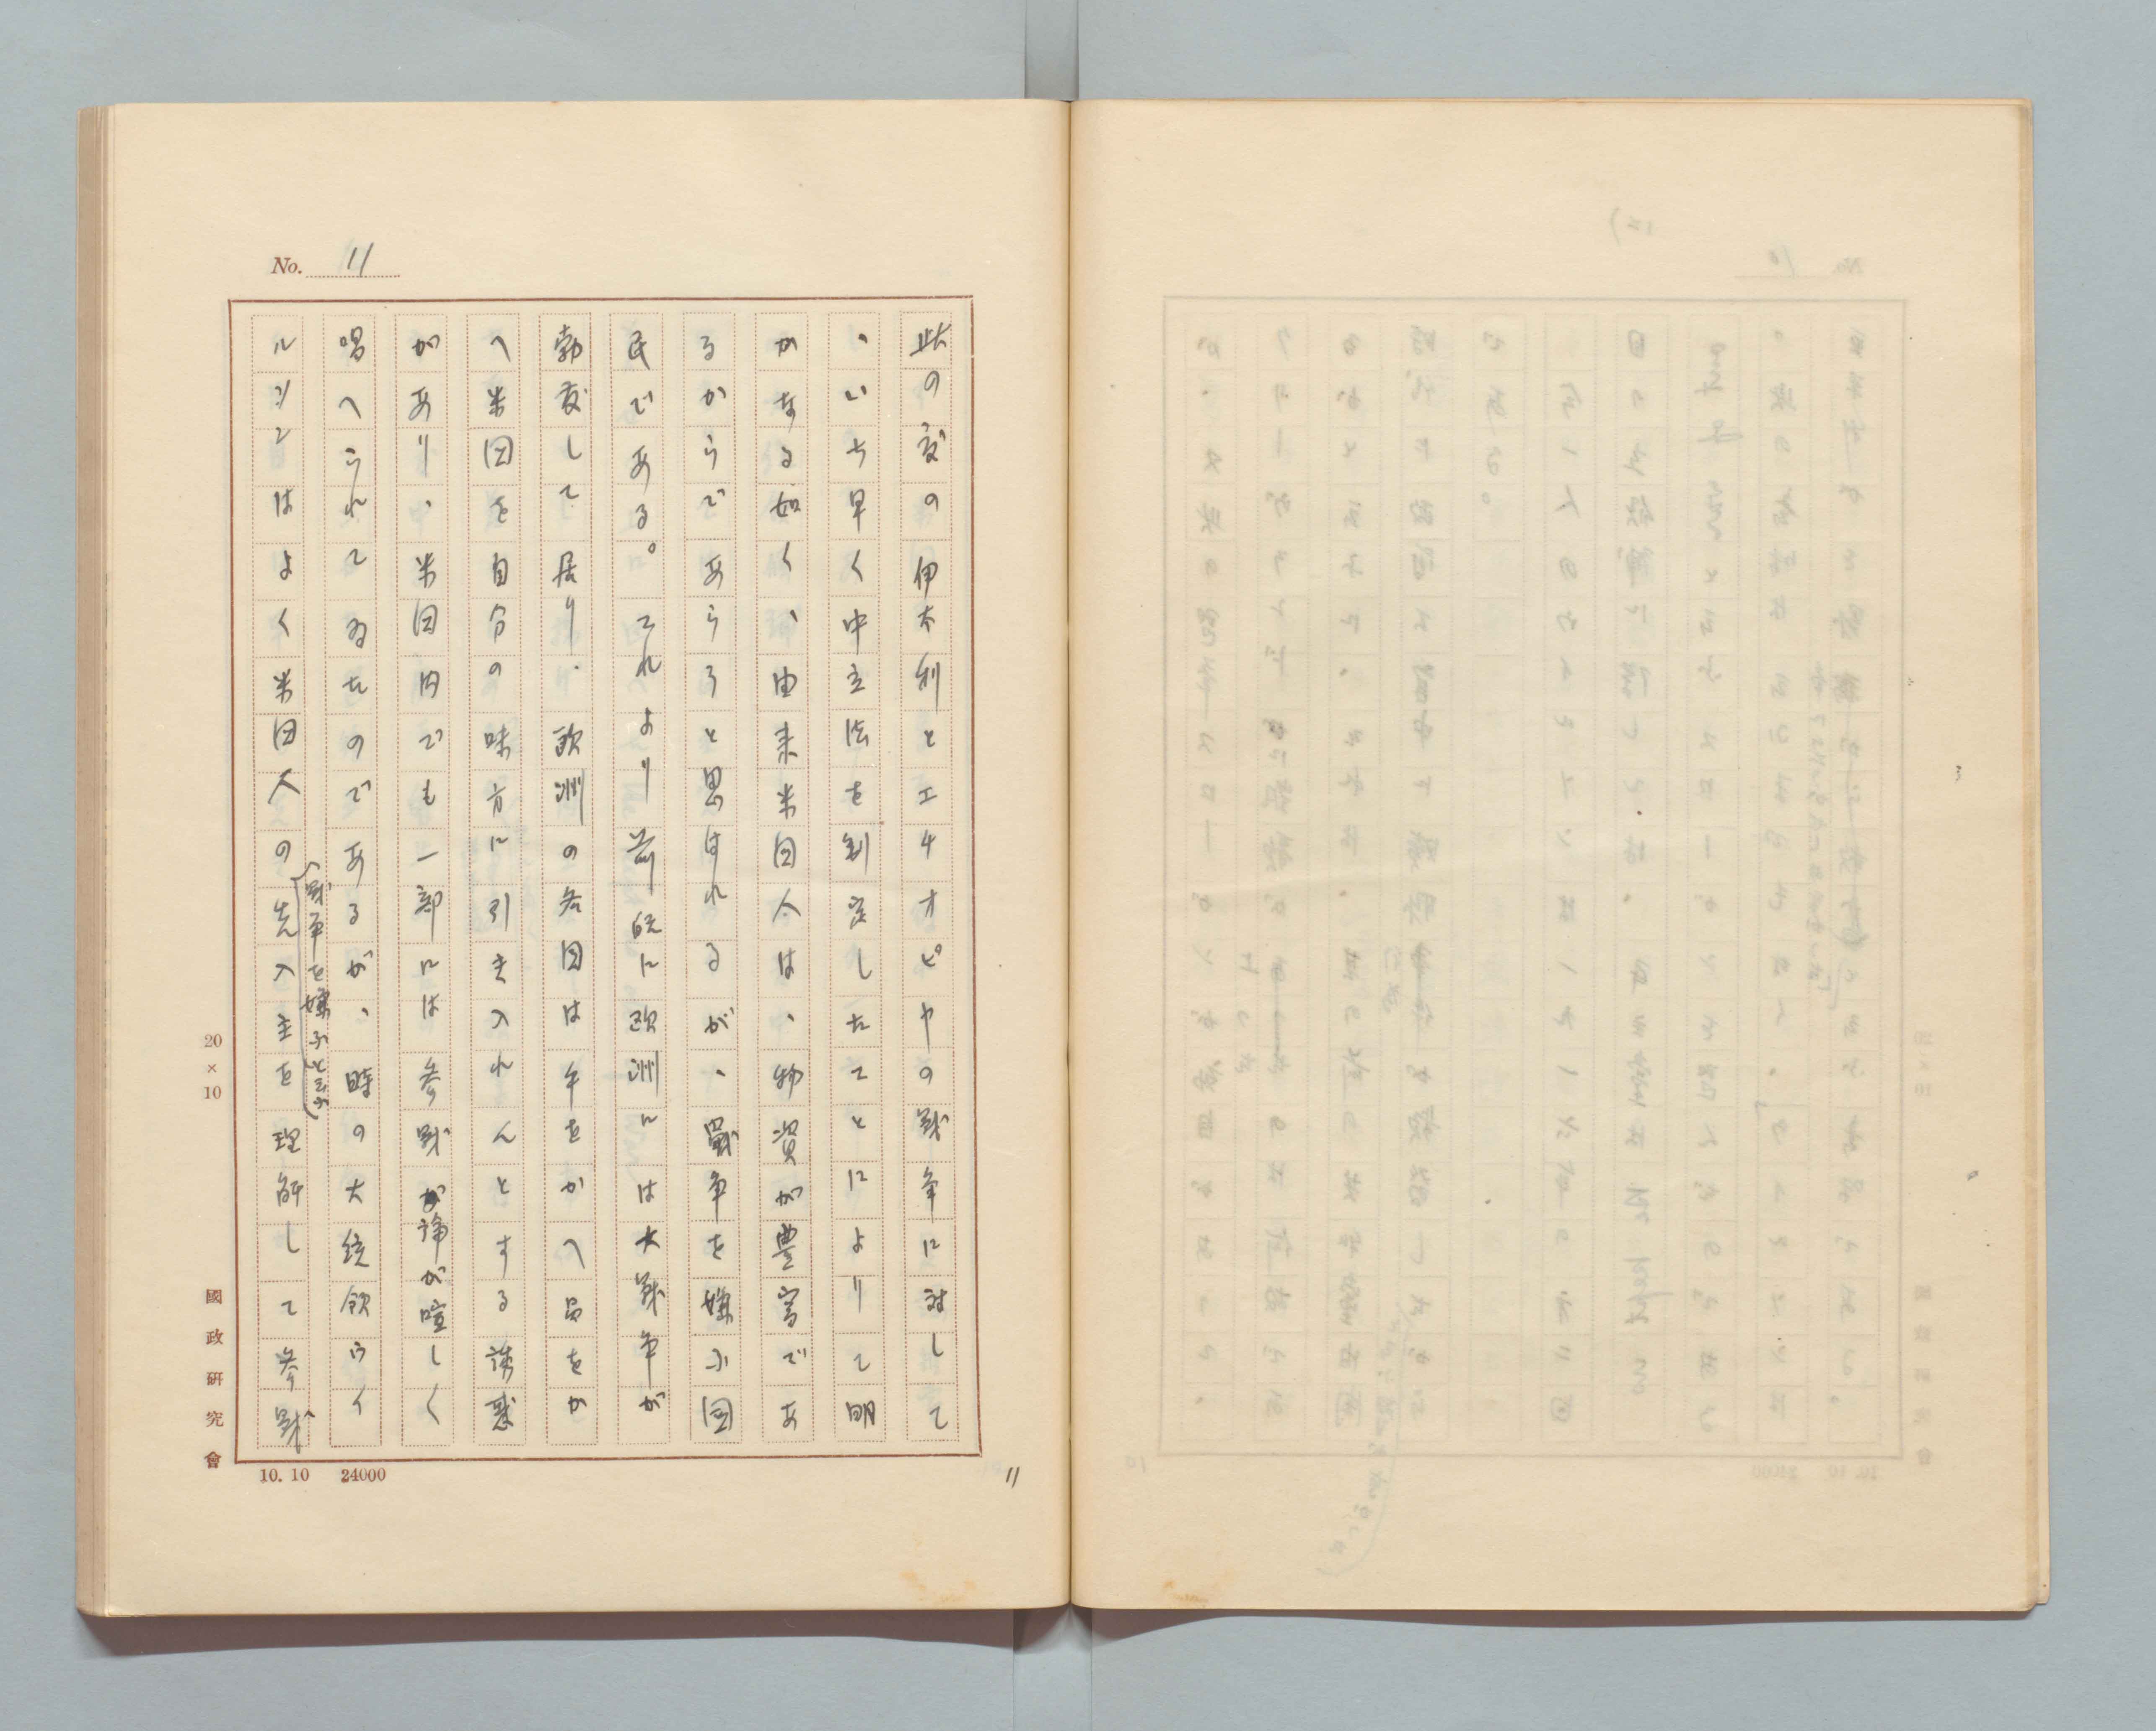 No. 11
此の度の伊太利とエチオピヤの戦争に対して
、いち早く中立法を制定したことによりて明
かなる如く、由来米国人は、物資が豊富であ
るからであらうと思はれるが、戦争を嫌ふ国
民である。これより前既に欧洲には大戦争が
勃发して居り、欧洲の各国は手をかへ品をか
へ米国を自分の味方に引き入れんとする誘惑
があり、米国内でも一部には参戦論が喧しく
唱へられてゐたのであるが、時の大統領ウイ
(戦争を嫌ふと云ふ)
ルソンはよく米国人の先入主を理解して参戦
20×10
國政研究會
10.10 24000
11